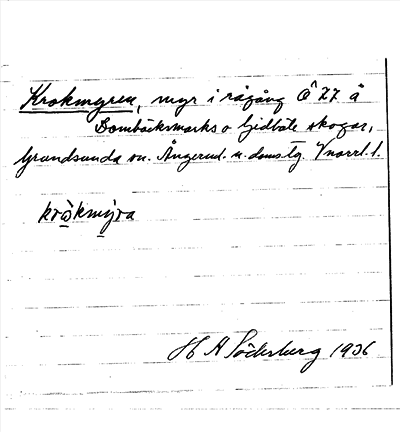 Krokmyren, myr i rågång Ö 77 å
Bombäcksmarks o Gidböle skogar,
Grundsunda sn. Ångerml. n. doms tg. Vnorrl. l.
kròkmýra
H A Söderberg 1936